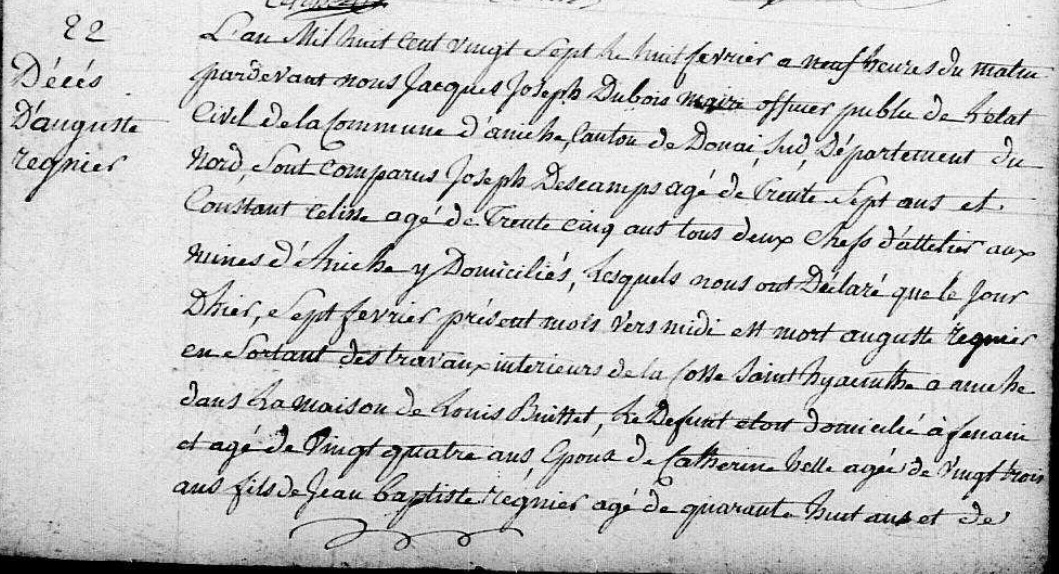 22
Décés
D'auguste
regnier
L'an Mil huit Cent vingt Sept le huit fevrier a neuf heures du matin
pardevant nous Jacques Joseph Dubois maire officier public de l'etat
Civil de la Commune d'aniche, Canton de Douai, sud, Département du
Nord, Sont Comparus Joseph Descamps agé de Trente Sept ans et
Constant Celisse agé de Trente cinq ans tous deux Chefs d'attelier aux
Mines d'Aniche y Domiciliés, Lesquels nous ont Déclaré que le Jour
Dhier, Sept fevrier présent mois vers midi est mort auguste regnier
en Sortant des travaux interieurs de la fosse Saint hyacinthe a aniche
dans La maison de Louis, Le Defunt etoit domicilié à fenain
et agé de Vingt quatre ans, Epoux de Catherine helle agée de Vingt trois
ans fils de Jean baptiste regnier agé de quarante huit ans et de